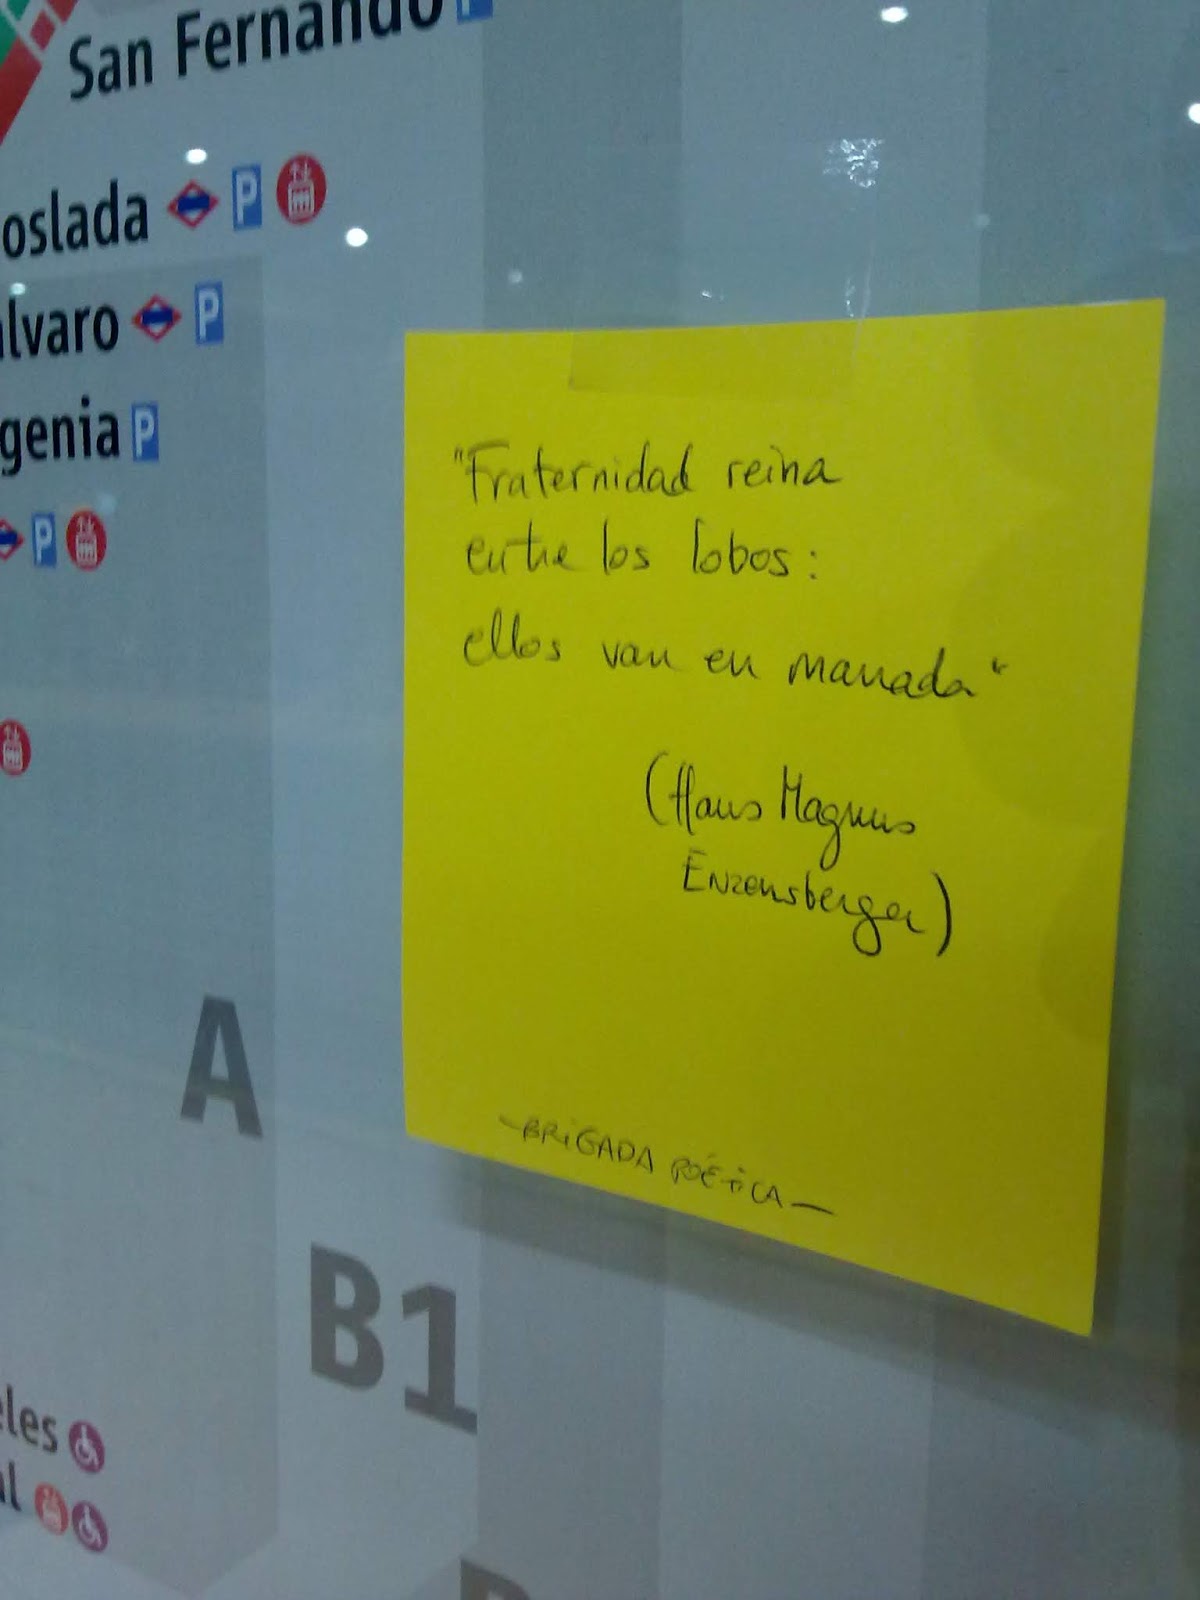 San Fernando P
oslada P
lvaro P
genia P
P
"Fraternidad reina
entre los lobos:
ellos van en manada"
(Hans Magnus
Enzensberger)
-BRIGADA POÉTICA-
A
B1
eles
al